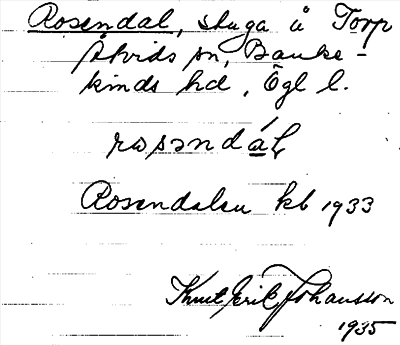 Rosendal, stuga å Torp
Åtvids sn, Banke-
kinds hd, Ögl l.
Rosendalen kb 1933
Knut Erik Johansson
1935